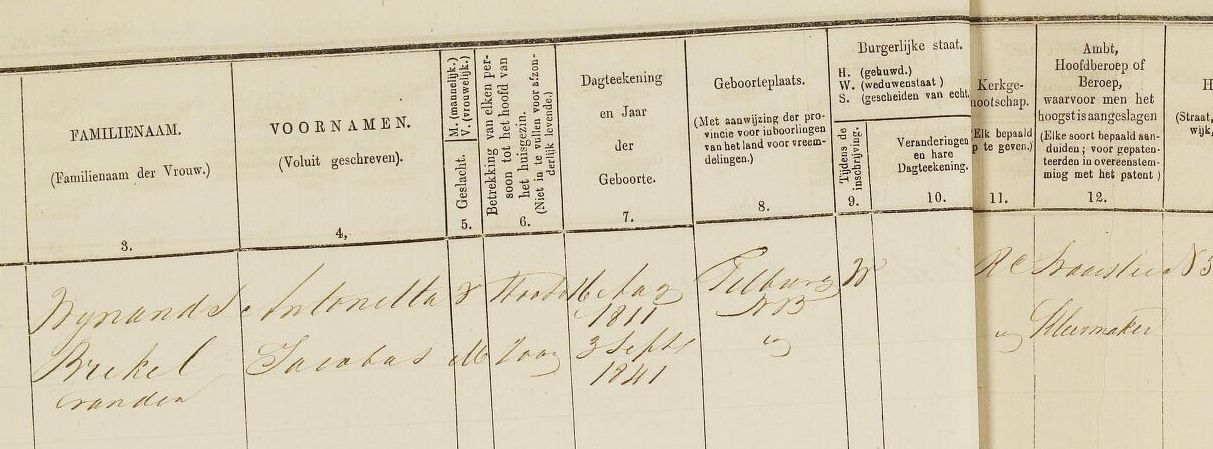 FAMILIENAAM.
(Familienaam der Vrouw.)
3.
VOORNAMEN.
(Voluit geschreven).
4,
Geslacht.
M. (mannelijk.)
V. (vrouwelijk.)
5.
Betrekking van elken per-
soon tot het hoofd van
het huisgezin.
(Niet in te vullen voor afzon-
derlijk levende.)
6.
Dagteekening
en Jaar
der
Geboorte.
7.
Geboorteplaats.
(Met aanwijzing der pro-
vincie voor inboorlingen
van het land voor vreem-
delingen.)
8.
Burgerlijke staat.
H. (gehuwd.)
W. (weduwenstaat)
S. (gescheiden van echt.
Tijdens de
inschrijving.
9.
Veranderingen
en hare
Dagteekening.
10.
Kerkge-
nootschap.
Elk bepaald
p te geven.)
11.
Ambt,
Hoofdberoep of
Beroep,
waarvoor men het
hoogst is aangeslagen
(Elke soort bepaald aan-
duiden; voor gepaten-
teerden in overeenstem-
ming met het patent)
12.
H
(Straat,
wijk,
Wynands Antonetta V Hoofd 16 Aug 1811 Tilburg NB W R C N3
Brekel vanden Jacobus M Zoon 3 Sept 1841